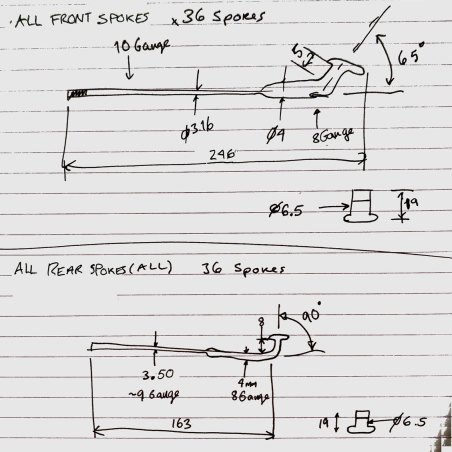 . ALL FRONT SPOKES x 36 Spokes
10 Gauge
5.2
65°
Ø3.16
Ø4
8 Gauge
246
Ø6.5
19
ALL REAR SPOKES (ALL) 36 Spokes
8
90°
3.50
~9 Gauge
4mm
8 Gauge
163
19
Ø6.5